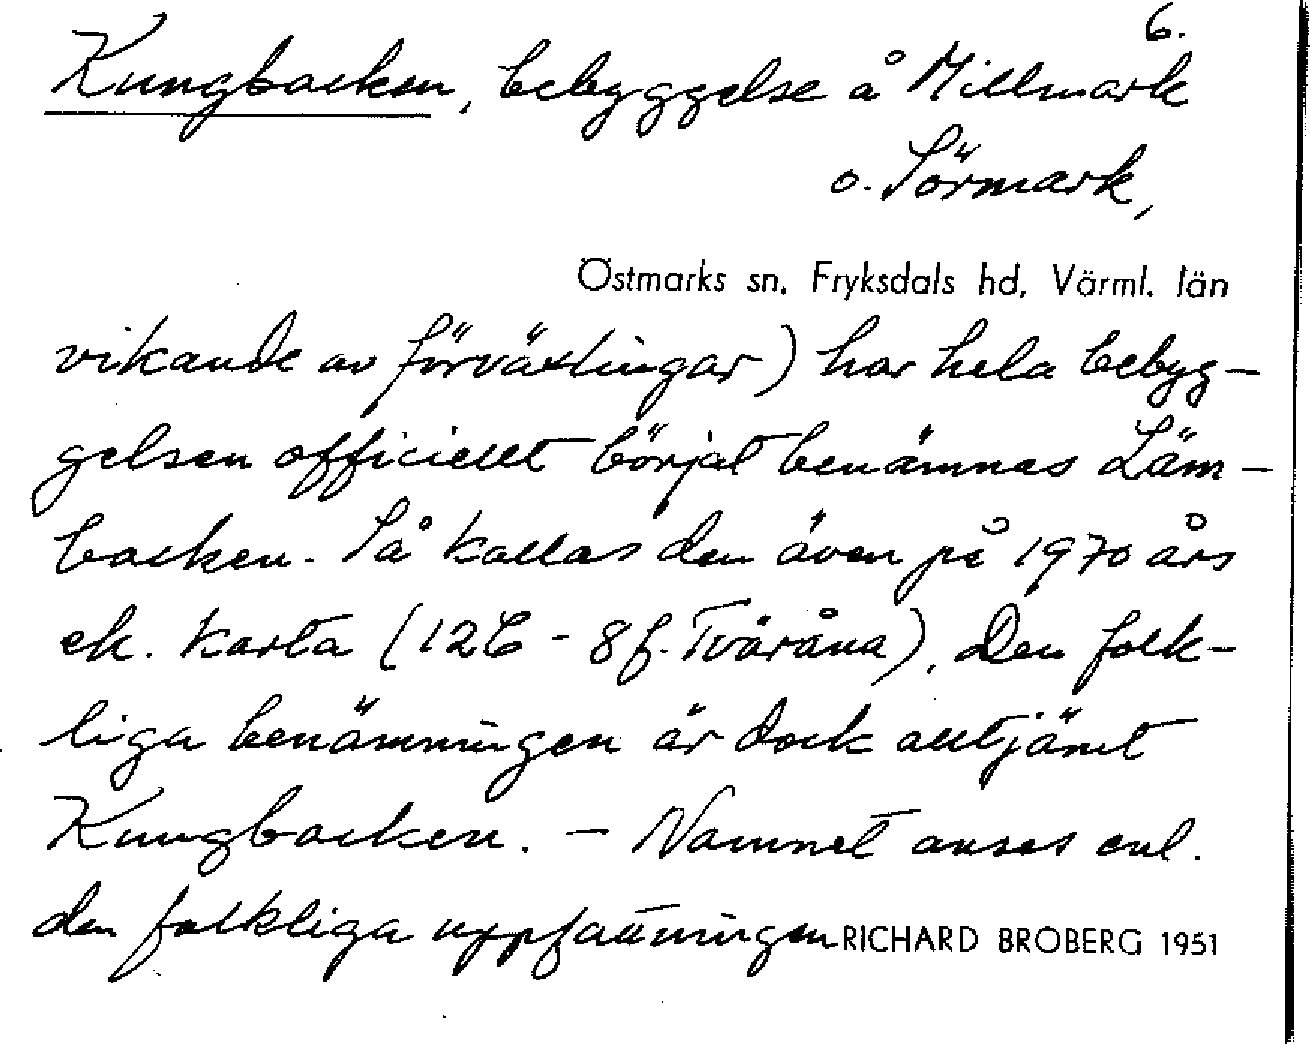 6.
Kungbacken, bebyggelse å Millmark
o. Sörmark,
Östmarks sn. Fryksdals hd, Värml. län
vikande av förväxlingar) har hela bebyg-
gelsen officiellt börjat benämnas Läm-
backen. Så kallas den även på 1970 års
ek. karta (12C - 8f. Tväråna). Den folk-
liga benämningen är dock alltjämt
Kungbacken. - Namnet anses enl.
den folkliga uppfattningen RICHARD BROBERG 1951